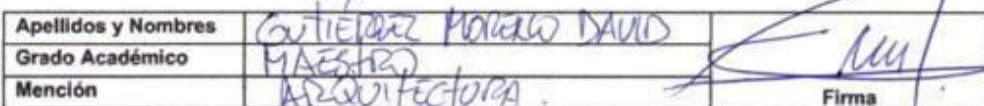 Apellidos y Nombres GUTIÉRREZ MORENO DAVID
Grado Académico MAESTRO
Mención ARQUITECTURA.
Firma